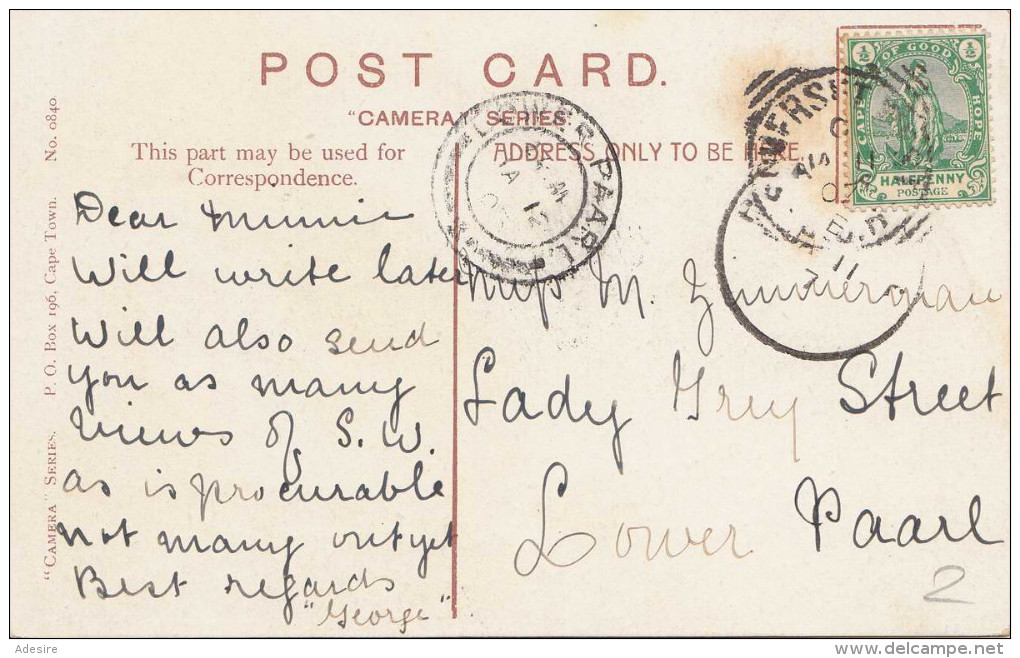 POST CARD.
"CAMERA" SERIES.
This part may be used for
Correspondence.
ADDRESS ONLY TO BE HERE.
Dear Minnie
Will write later
Will also send
you as many
Views of S. W.
as is procurable
not many out yet
Best regards
"George"
M. Zimmerman
Lady Grey Street
Lower Paarl
2
"CAMERA" SERIES. P. O. Box 196, Cape Town. No. 0840.
LOWER PAARL
SOMERSET
11
07
11
7
1/2 1/2
CAPE OF GOOD HOPE
HALFPENNY
POSTAGE
Adesire
delcampe.net